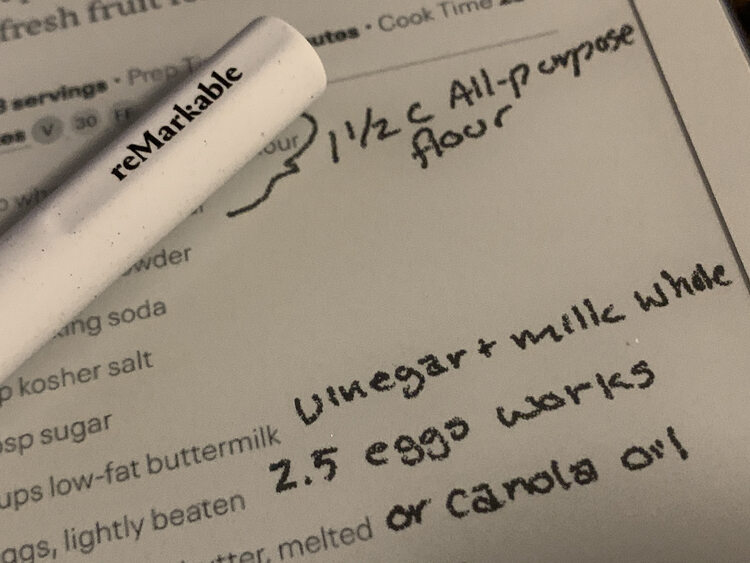 fresh fruit
servings • Prep utes • Cook Time
es V 30
reMarkable
our 1 1/2 c All-purpose
flour
wder
ing soda
kosher salt
sp sugar
ups low-fat buttermilk vinegar + milk whole
ggs, lightly beaten 2.5 eggs works
tter, melted or canola oil